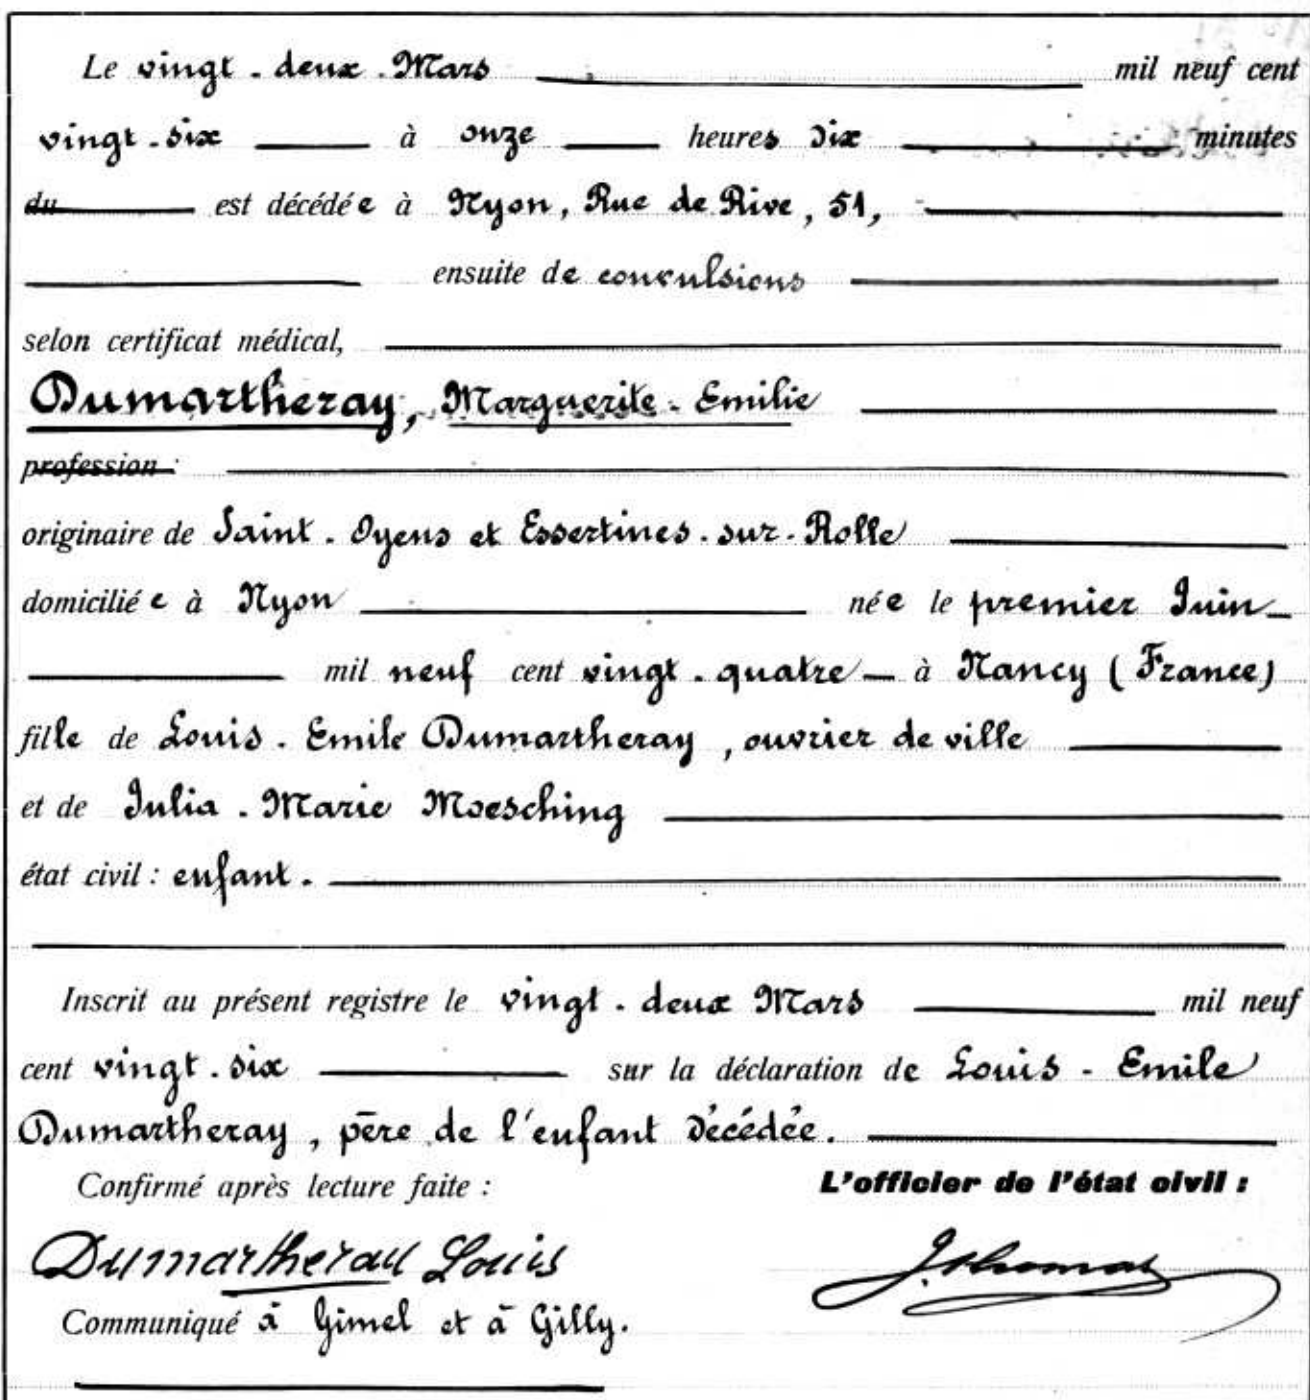 Le vingt-deux Mars mil neuf cent
vingt-six à onze heures dix minutes
du est décédée à Nyon, Rue de Rive, 51,
ensuite de convulsions
selon certificat médical,
Dumartheray, Marguerite-Emilie
profession :
originaire de Saint-Oyens et Essertines-sur-Rolle
domiciliée à Nyon née le premier Juin
mil neuf cent vingt-quatre à Nancy (France)
fille de Louis-Emile Dumartheray, ouvrier de ville
et de Julia-Marie Moesching
état civil : enfant.
Inscrit au présent registre le vingt-deux Mars mil neuf
cent vingt-six sur la déclaration de Louis-Emile
Dumartheray, père de l'enfant décédée.
Confirmé après lecture faite : L'officier de l'état civil :
Dumartheray Louis J. Thomas
Communiqué à Gimel et à Gilly.